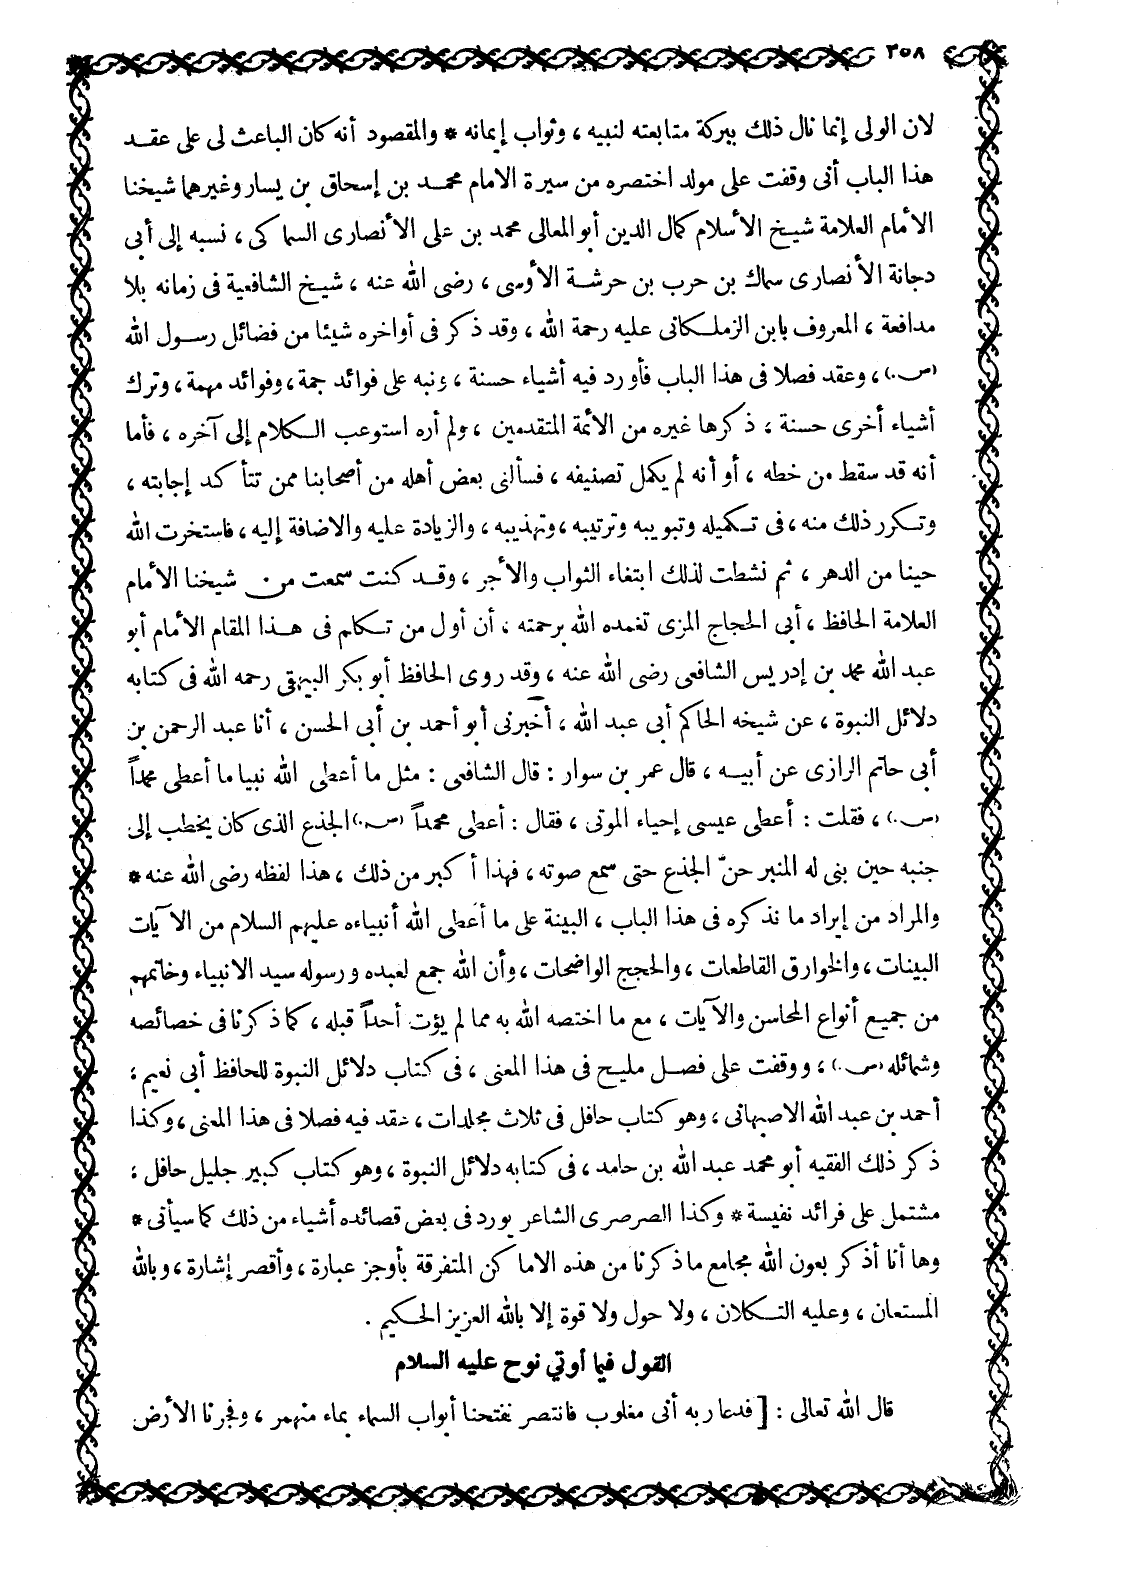 ٢٥٨
لان الولى إنما نال ذلك ببركة متابعته لنبيه ، وثواب إيمانه * والمقصود أنه كان الباعث لى على عقد
هذا الباب أنى وقفت على مولد اختصره من سيرة الامام محمد بن إسحاق بن يسار وغيرها شيخنا
الامام العلامة شيخ الأسلام كمال الدين أبو المعالى محمد بن على الأنصارى السماكى ، نسبه إلى أبى
دجانة الأنصارى سماك بن حرب بن حرشة الأوسى ، رضى الله عنه ، شيخ الشافعية فى زمانه بلا
مدافعة ، المعروف بابن الزملكانى عليه رحمة الله ، وقد ذكر فى أواخره شيئا من فضائل رسول الله
(ص.) ، وعقد فصلا فى هذا الباب فأورد فيه أشياء حسنة ، ونبه على فوائد جمة ، وفوائد مهمة ، وترك
أشياء أخرى حسنة ، ذكرها غيره من الأئمة المتقدمين ، ولم أره استوعب الكلام إلى آخره ، فأما
أنه قد سقط من خطه ، أو أنه لم يكمل تصنيفه ، فسألنى بعض أهله من أصحابنا ممن تتأكد إجابته ،
وتكرر ذلك منه ، فى تكميله وتبويبه وترتيبه ، وتهذيبه ، والزيادة عليه والاضافة إليه ، فاستخرت الله
حينا من الدهر ، ثم نشطت لذلك ابتغاء الثواب والأجر ، وقد كنت سمعت من شيخنا الأمام
العلامة الحافظ ، أبى الحجاج المزى تغمده الله برحمته ، أن أول من تكلم فى هذا المقام الأمام أبو
عبد الله محمد بن إدريس الشافعى رضى الله عنه ، وقد روى الحافظ أبو بكر البيهقى رحمه الله فى كتابه
دلائل النبوة ، عن شيخه الحاكم أبى عبد الله ، أخبرنى أبو أحمد بن أبى الحسن ، أنا عبد الرحمن بن
أبى حاتم الرازى عن أبيه ، قال عمر بن سوار : قال الشافعى : مثل ما أعطى الله نبيا ما أعطى محمداً
(ص.) ، فقلت : أعطى عيسى إحياء الموتى ، فقال : أعطى محمداً (ص.) الجذع الذى كان يخطب إلى
جنبه حين بنى له المنبر حنّ الجذع حتى سمع صوته ، فهذا أكبر من ذلك ، هذا لفظه رضى الله عنه *
والمراد من إيراد ما نذكره فى هذا الباب ، البينة على ما أعطى الله أنبياءه عليهم السلام من الآيات
البينات ، والخوارق القاطعات ، والحجج الواضحات ، وأن الله جمع لعبده ورسوله سيد الانبياء وخاتمهم
من جميع أنواع المحاسن والآيات ، مع ما اختصه الله به مما لم يؤت أحداً قبله ، كما ذكرنا فى خصائصه
وشمائله (ص.) ، ووقفت على فصل مليح فى هذا المعنى ، فى كتاب دلائل النبوة للحافظ أبى نعيم ،
أحمد بن عبد الله الاصبهانى ، وهو كتاب حافل فى ثلاث مجلدات ، عقد فيه فصلا فى هذا المعنى ، وكذا
ذكر ذلك الفقيه أبو محمد عبد الله بن حامد ، فى كتابه دلائل النبوة ، وهو كتاب كبير جليل حافل ،
مشتمل على فرائد نفيسة * وكذا الصرصرى الشاعر يورد فى بعض قصائده أشياء من ذلك كما سيأتى *
وها أنا أذكر بعون الله مجامع ما ذكرنا من هذه الاماكن المتفرقة بأوجز عبارة ، وأقصر إشارة ، وبالله
المستعان ، وعليه التكلان ، ولا حول ولا قوة إلا بالله العزيز الحكيم .
القول فيما أوتي نوح عليه السلام
قال الله تعالى : [ فدعا ربه أنى مغلوب فانتصر ففتحنا أبواب السماء بماء منهمر ، وفجرنا الأرض